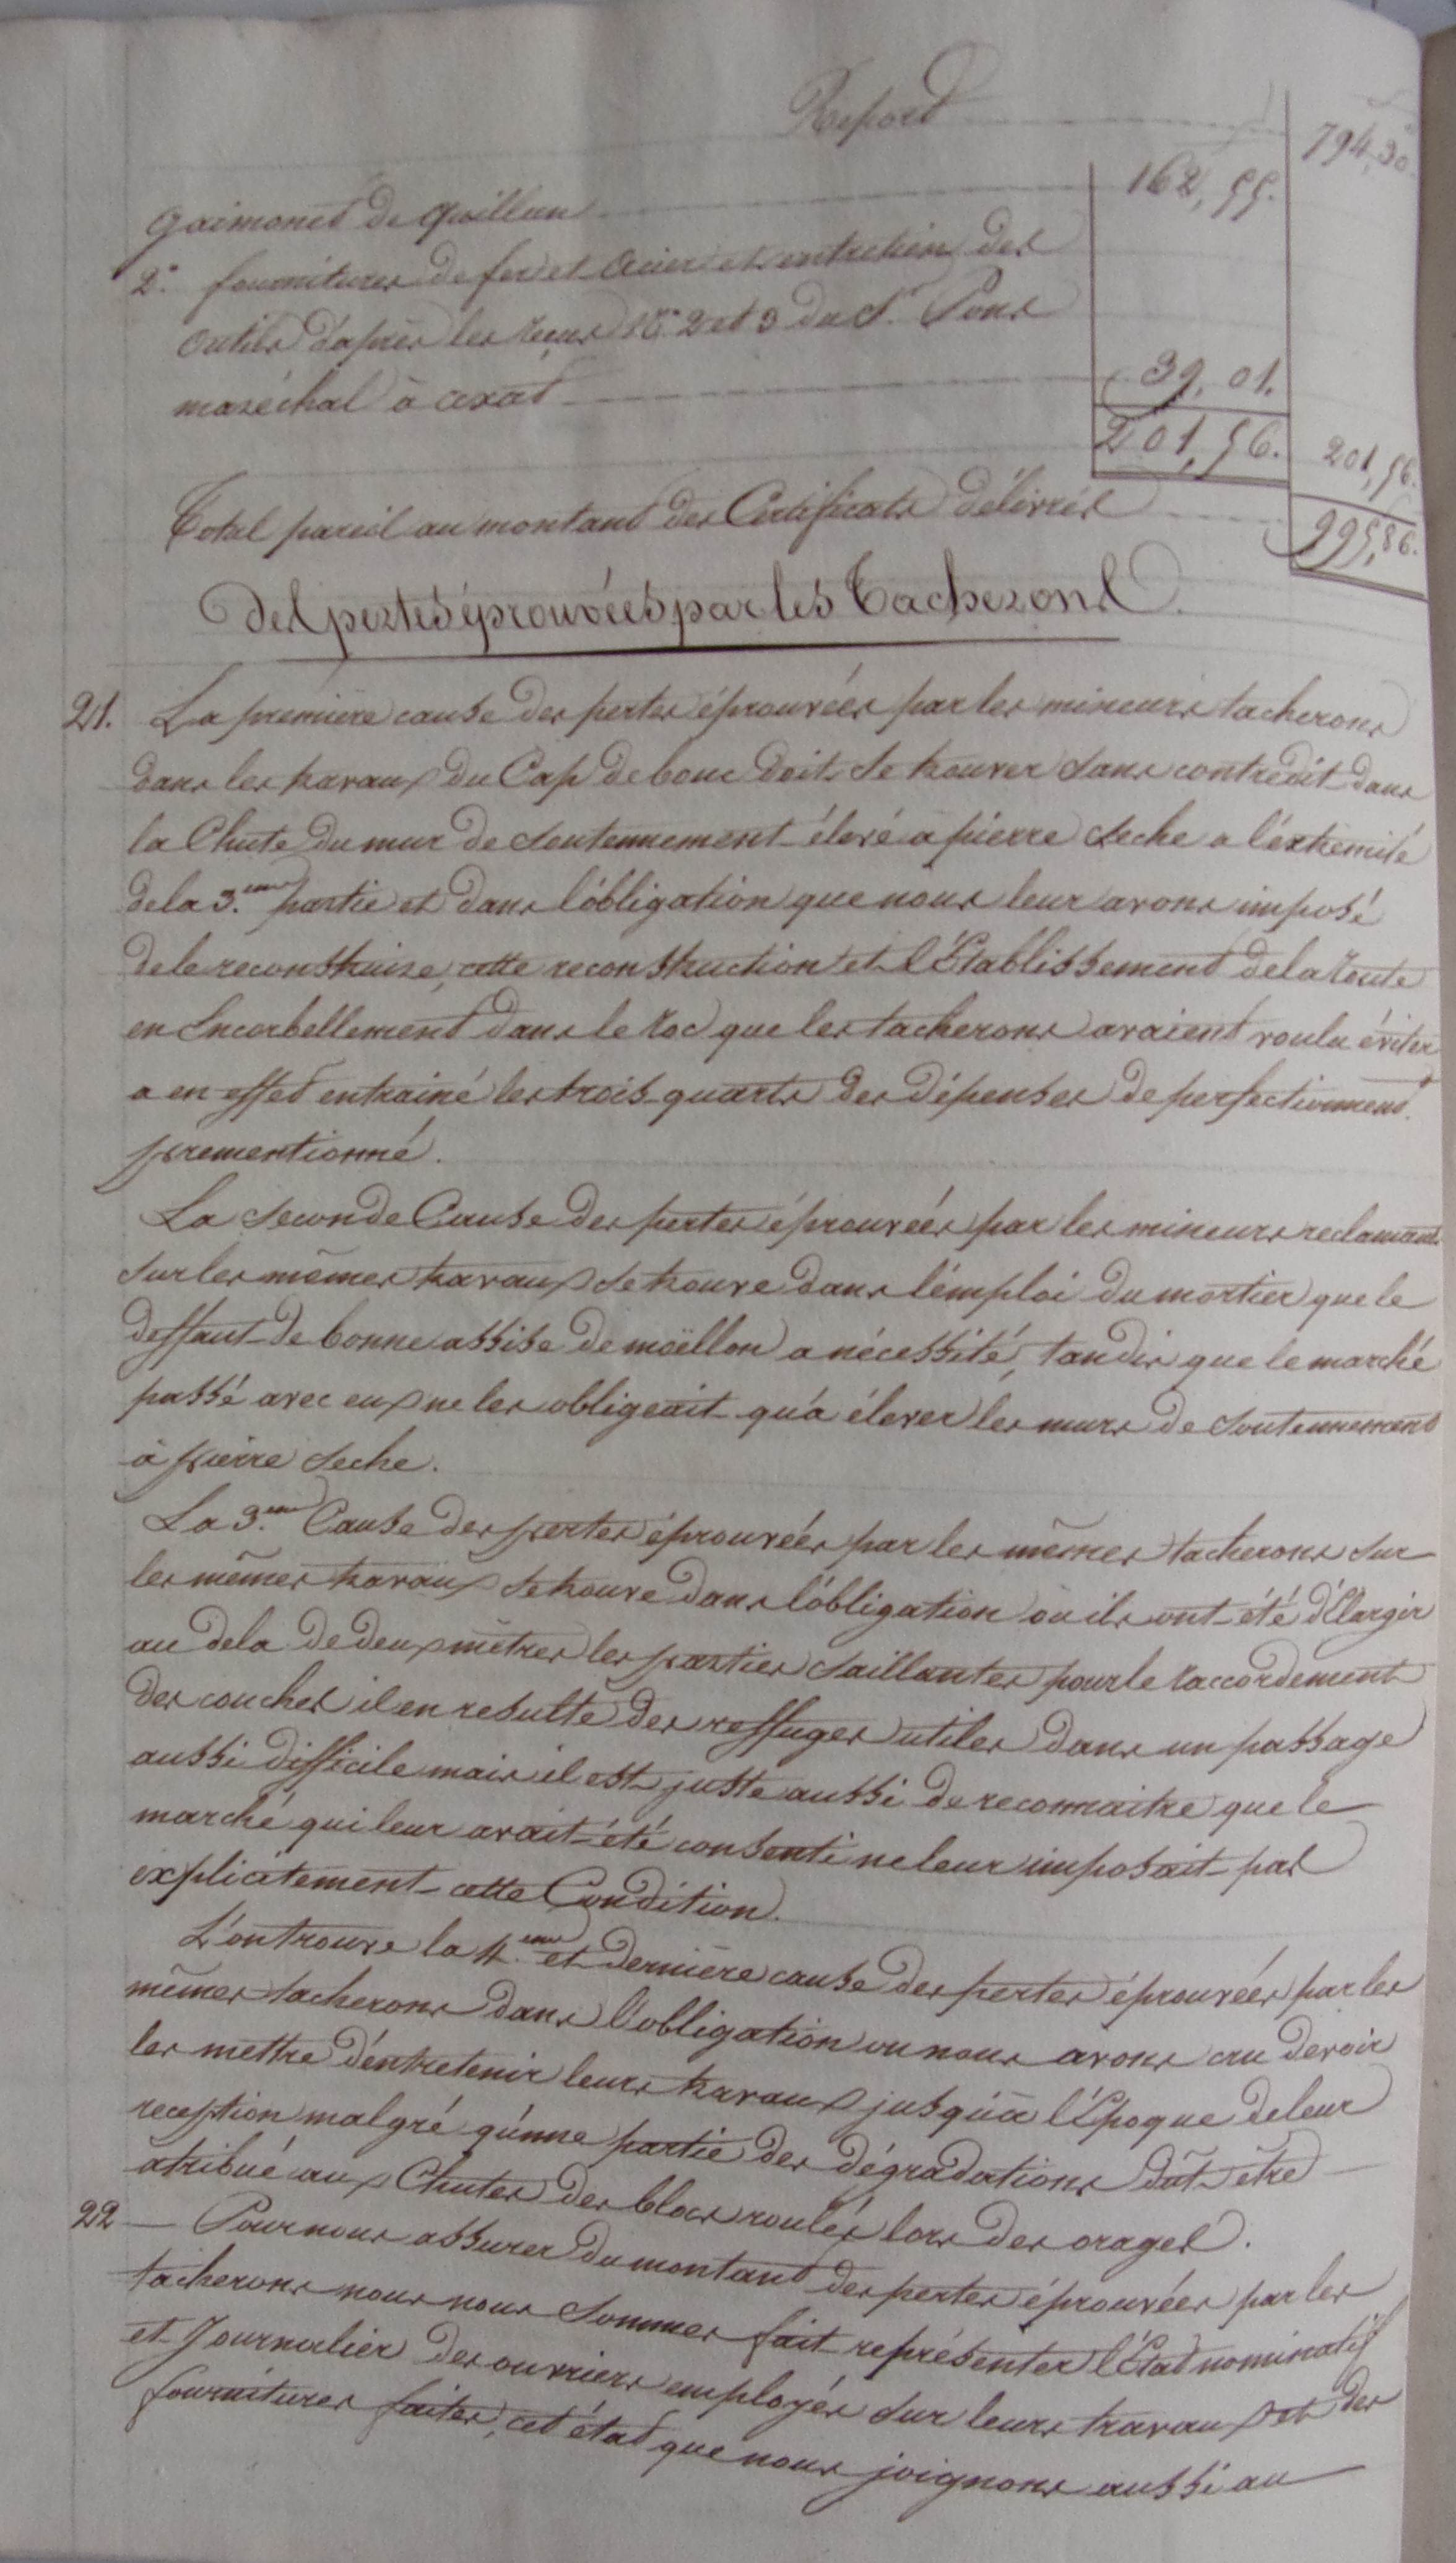 Report 794,30
Gaimonet de quillan 162,55.
2.° fournitures de fer et acier et entretien des
outils d'après les reçus N.os 2 et 3 du S.r Pons
maréchal à axat 39,01.
201,56. 201,56.
Total pareil au montant des Certificats délivrés 995,86.
Des pertes éprouvées par les Tacherons.
21. La première cause des pertes éprouvées par les mineurs tacherons
dans les travaux du Cap de bouc doit se trouver sans contredit dans
la Chute du mur de soutennement élevé a pierre seche a l'extremité
de la 3.eme partie et dans l'obligation que nous leur avons imposé
de le reconstruire, cette reconstruction et l'Etablissement de la route
en Encorbellement dans le roc que les tacherons avaient voulu éviter
a en effet entrainé les trois quarts des dépenses de perfectionnent.
prementionné.
La seconde Cause des pertes éprouvées par les mineurs reclamants
sur les mêmes travaux se trouve dans l'emploi du mortier que le
deffaut de bonne assise de moëllon a nécessité, tandis que le marché
passé avec eux ne les obligeait qu'à élever les murs de soutennement
à pierre seche.
La 3.eme Cause des pertes éprouvées par les mêmes tacherons sur
les mêmes travaux se trouve dans l'obligation où ils ont été d'Elargir
au dela de deux mètres les parties saillantes pour le raccordement
des couches il en resulte des reffuges utiles dans un passage
aussi difficile mais il est juste aussi de reconnaitre que le
marché qui leur avait été consenti ne leur imposait pas
explicitement cette Condition.
L'on trouve la 4.eme et dernière cause des pertes éprouvées par les
mêmes tacherons dans l'obligation ou nous avons cru devoir
les mettre d'entretenir leurs travaux jusqu'à l'Epoque de leur
reception malgré qu'une partie des dégradations dût être
atribué aux Chutes des blocs roulés lors des orages.
22 — Pour nous assurer du montant des pertes éprouvées par les
tacherons nous nous sommes fait représenter l'Etat nominatif
et Journalier des ouvriers employés sur leurs travaux et des
fournitures faites, cet état que nous joignons aussi au